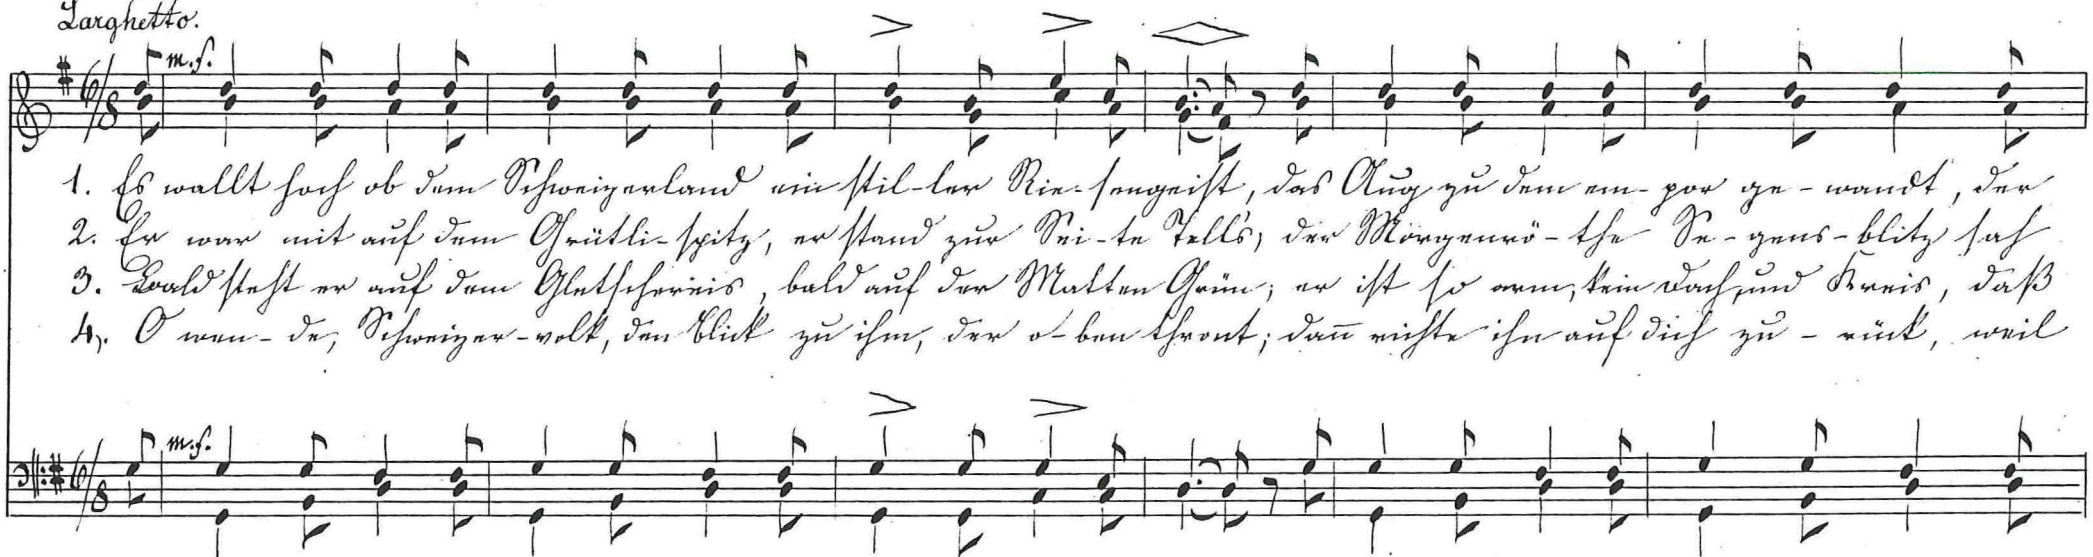 Larghetto.
m.f.
6/8
1. Es wallt hoch ob dem Schweizerland ein stil-ler Rie-sengeist, das Aug zu dem em-por ge-wandt, der
2. Er war mit auf dem Grütli-spitz, er stand zur Sei-te Tells, der Morgenrö-the Se-gens-blitz sah
3. Bald steht er auf dem Gletschereis, bald auf der Matten Grün; er ist so arm, kein Dach, und Kreis, daß
4. O wen-de, Schweizer-volk, den Blick zu ihm, der o-ben thront; dann richte ihn auf dich zu-rück, weil
m.f.
6/8